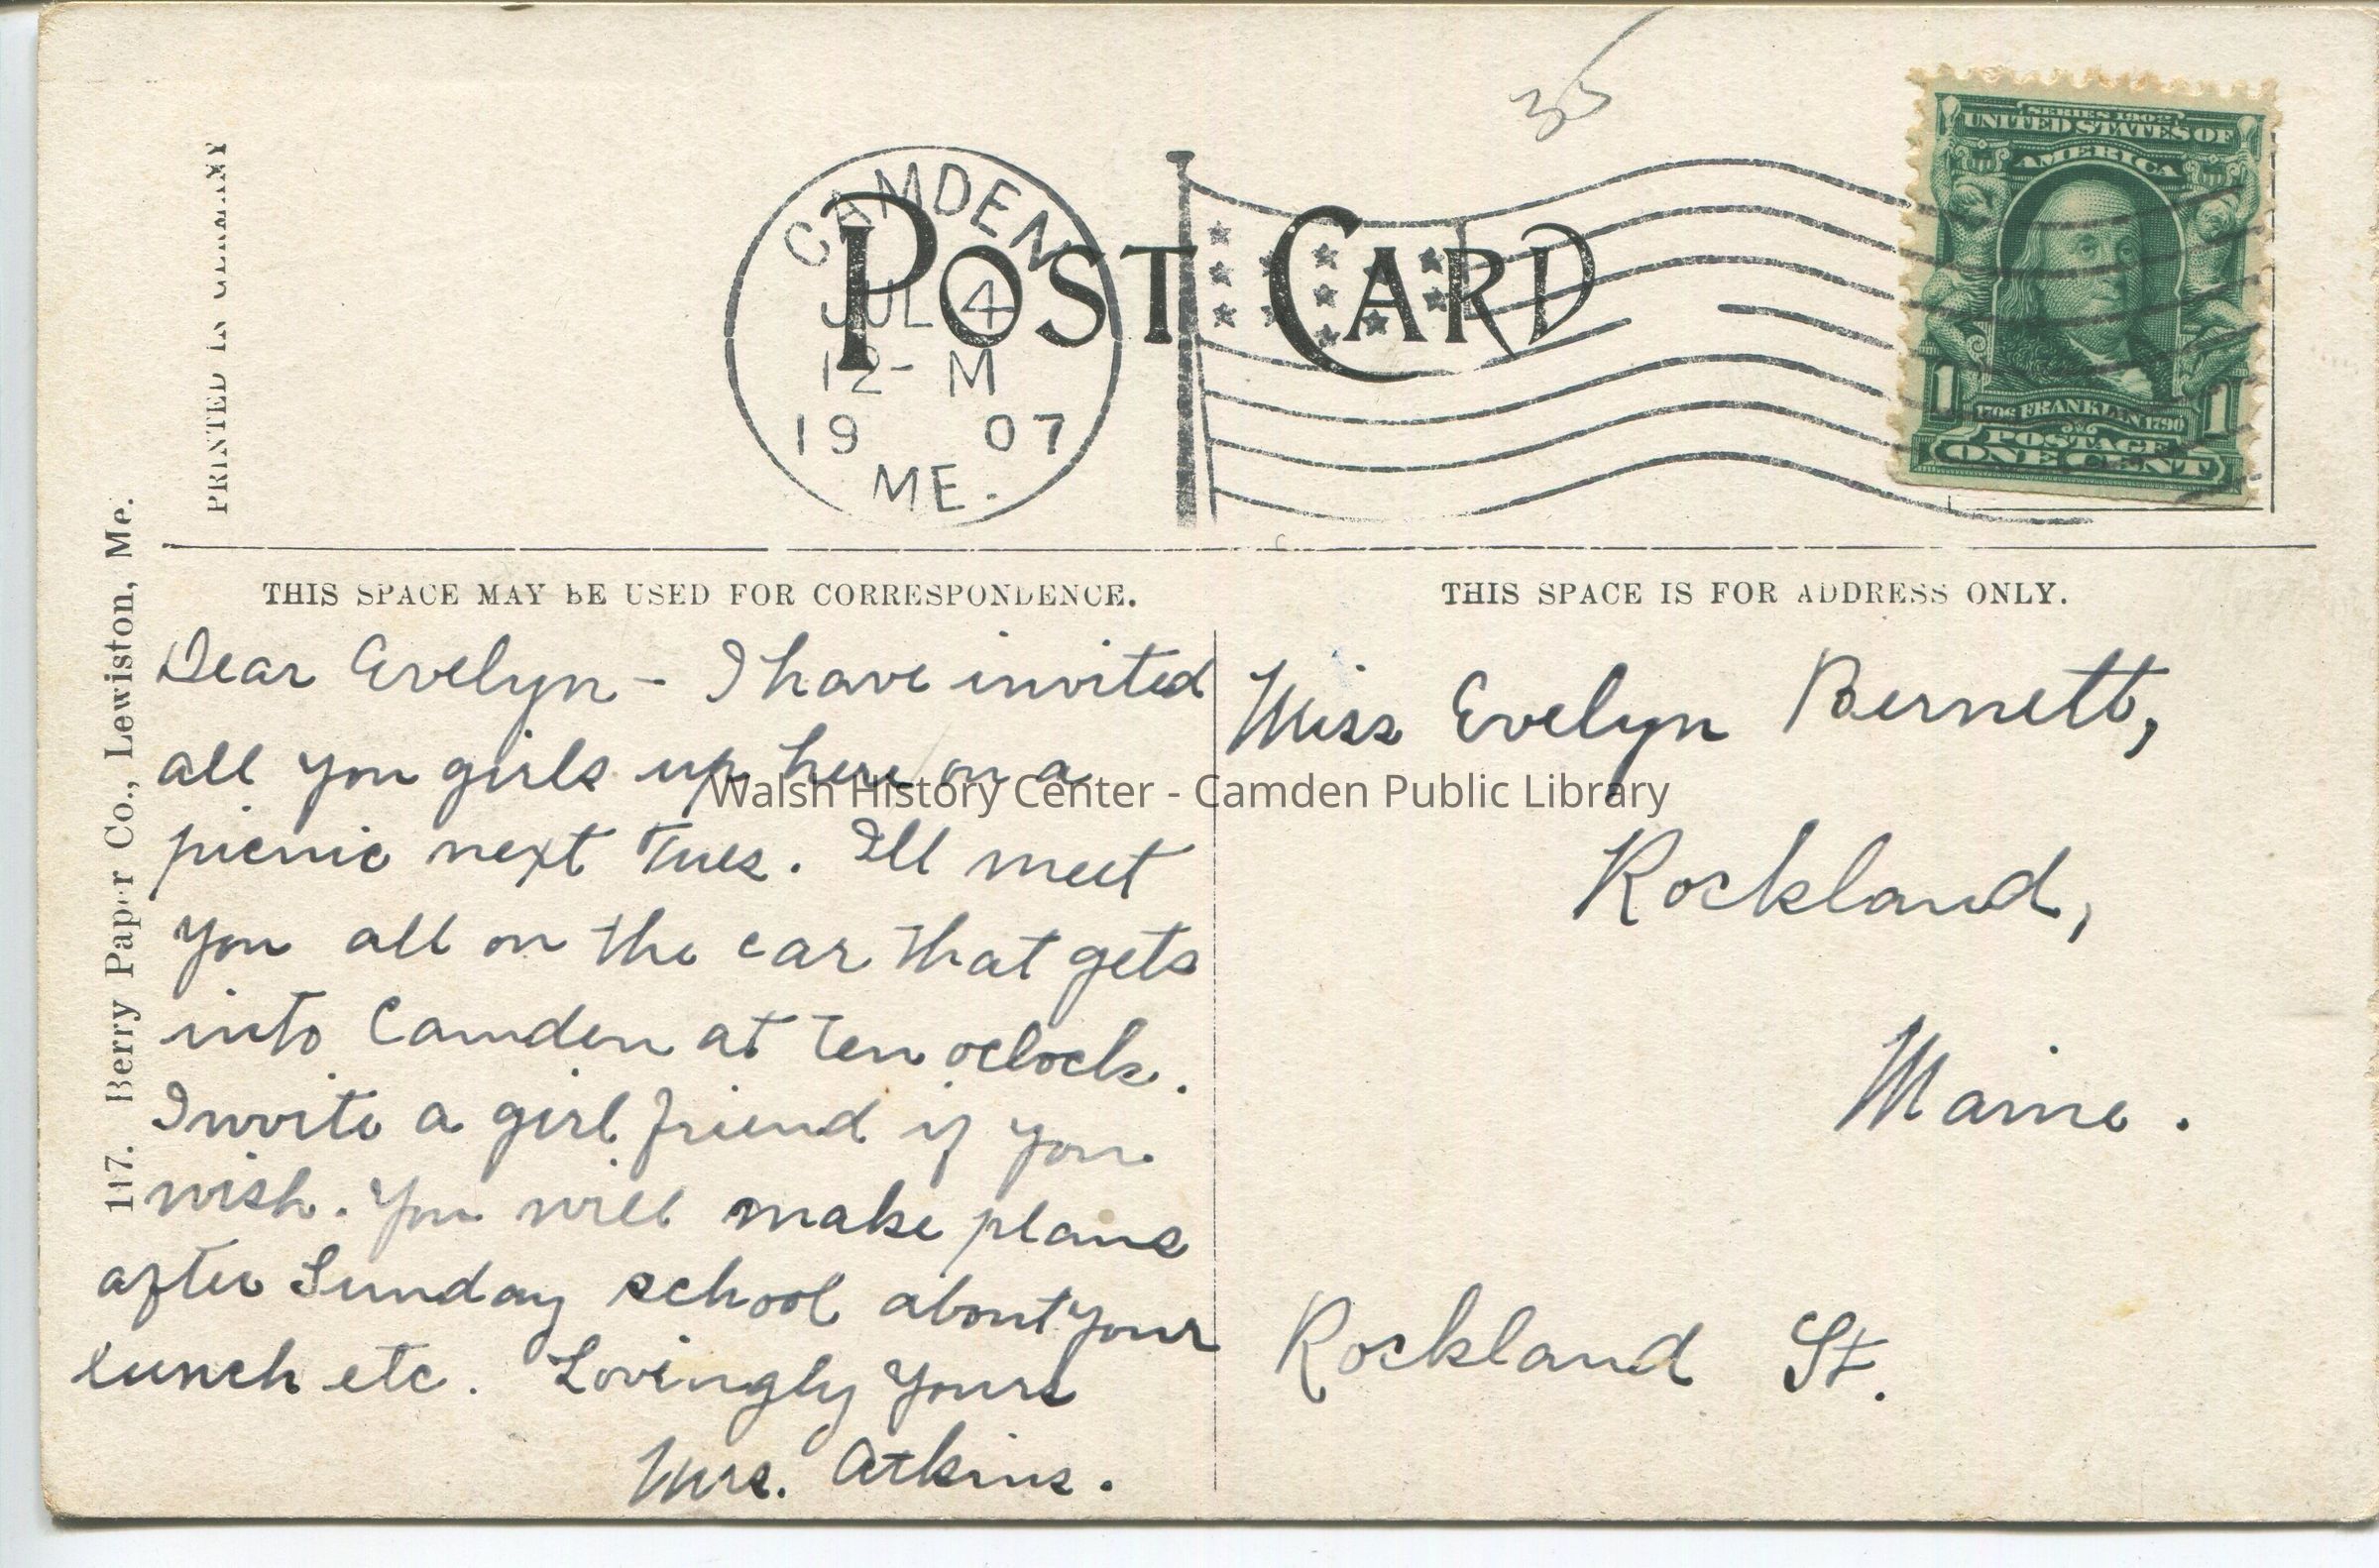 35
CAMDEN
JUL 4
12- M
19 07
ME.
POST CARD
SERIES 1902
UNITED STATES OF
AMERICA
1 1
1706 FRANKLIN 1790
POSTAGE
ONE CENT
PRINTED IN GERMANY
117. Berry Paper Co., Lewiston, Me.
THIS SPACE MAY BE USED FOR CORRESPONDENCE.
THIS SPACE IS FOR ADDRESS ONLY.
Dear Evelyn - I have invited
all you girls up here on a
picnic next Tues. Ill meet
you all on the car that gets
into Camden at ten oclock.
Invite a girl friend if you
wish. You will make plans
after Sunday school about your
lunch etc. Lovingly yours
Mrs. Atkins.
Miss Evelyn Bernett,
Rockland,
Maine.
Rockland St.
Walsh History Center - Camden Public Library